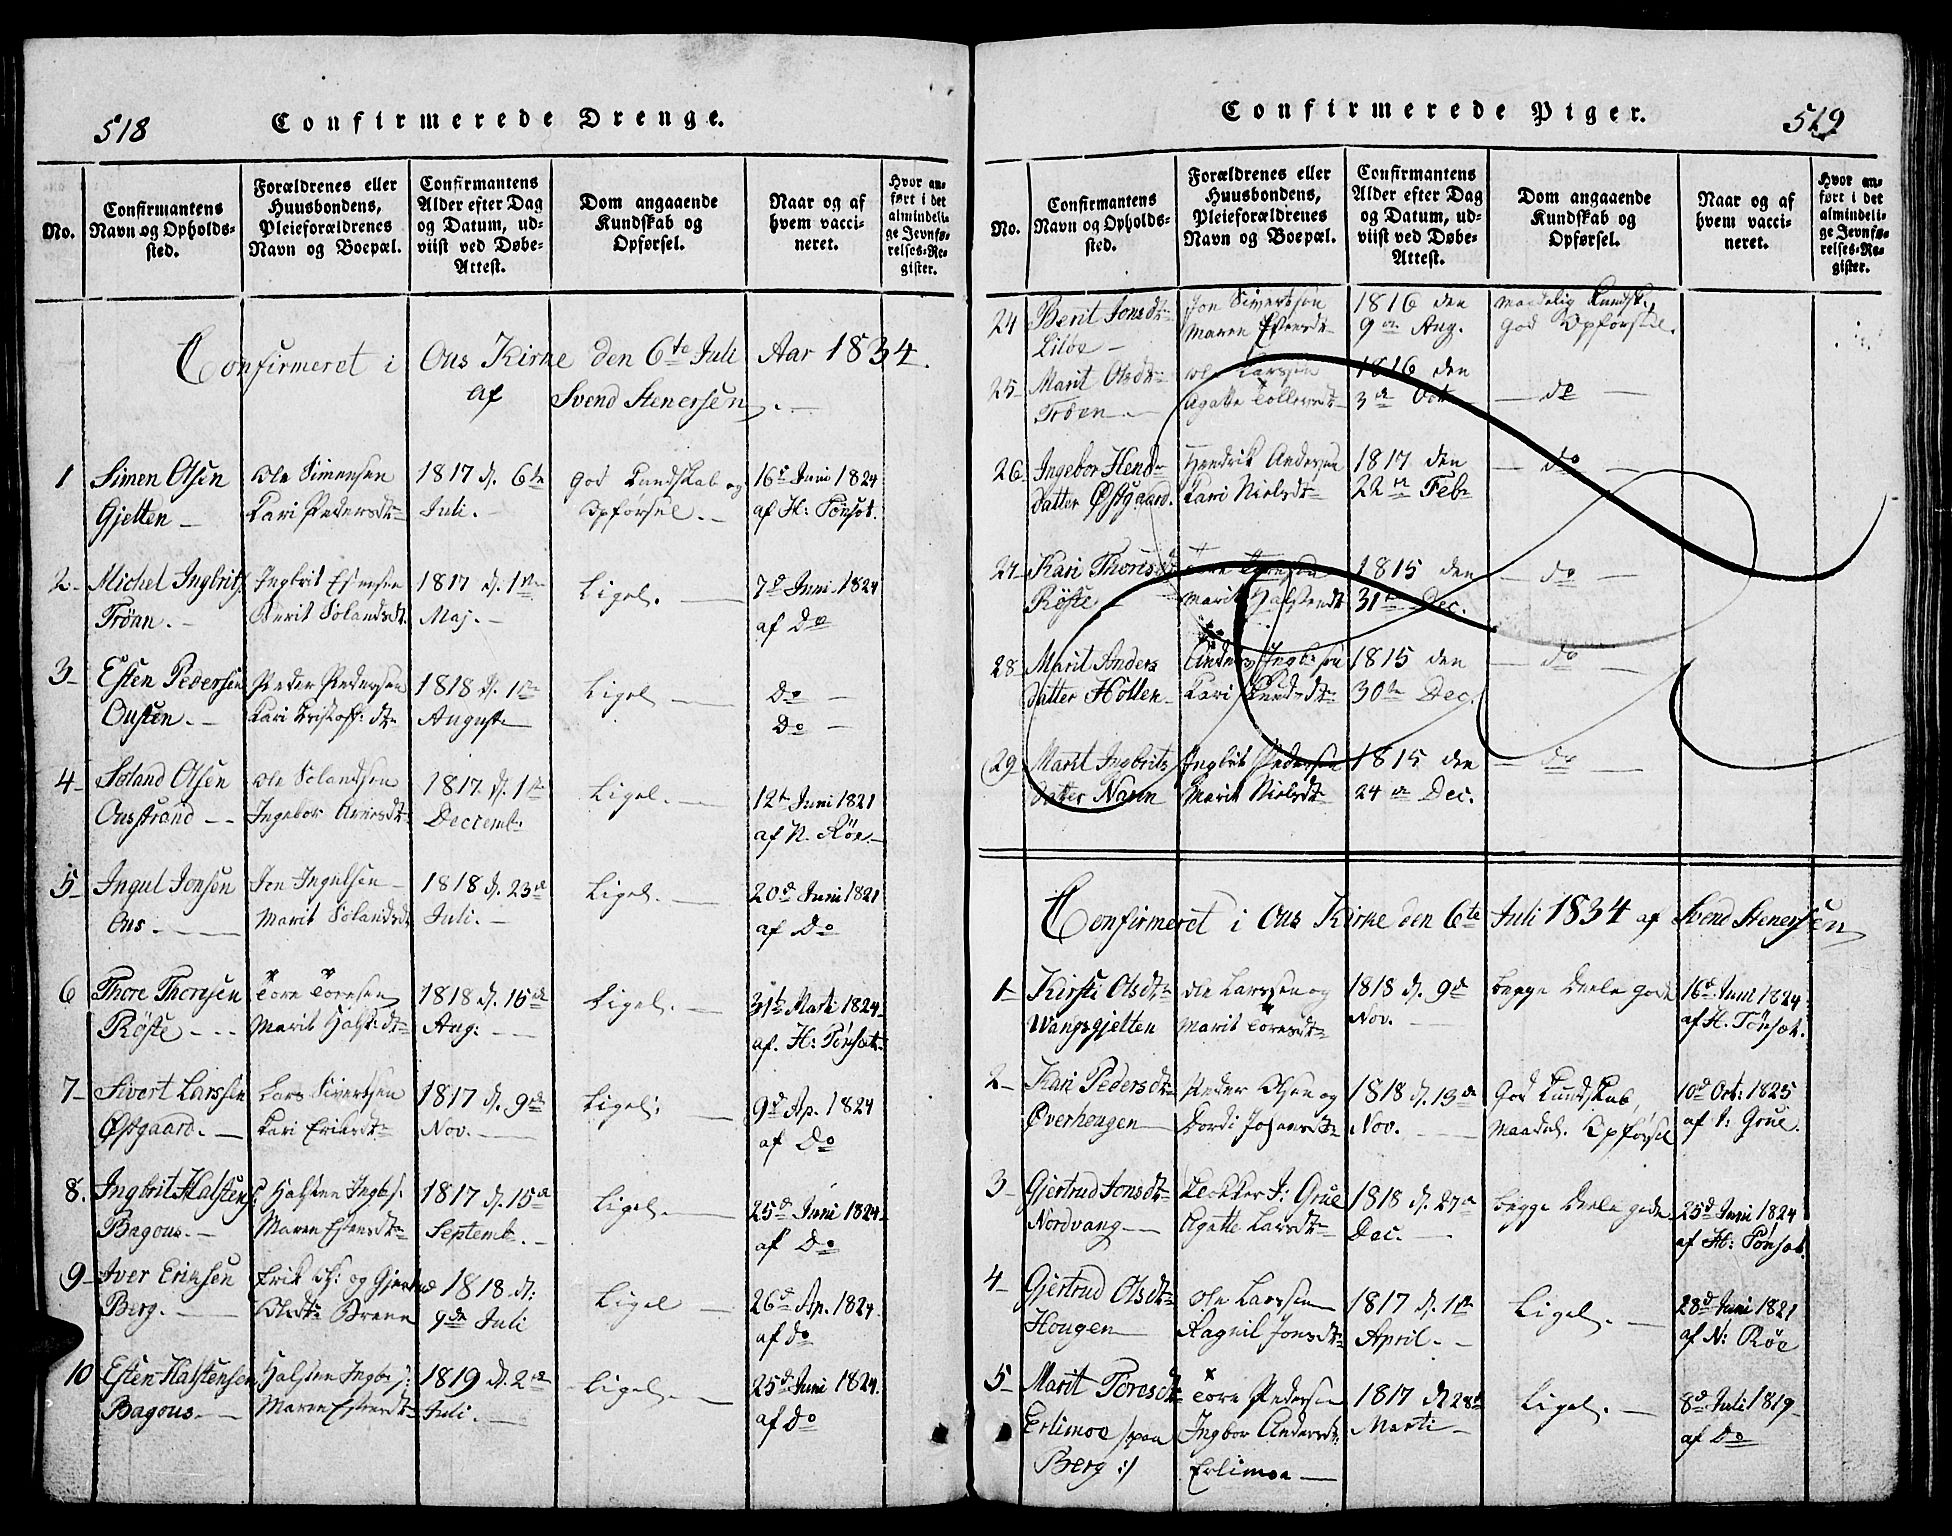 518
Confirmerede Drenge.
No.
Confirmantens
Navn og Opholds-
sted.
Forældrenes eller
Huusbondens,
Pleieforældrenes
Navn og Boepæl.
Confirmantens
Alder efter Dag
og Datum, ud-
viist ved Døbe-
Attest.
Dom angaaende
Kundskab og
Opførsel.
Naar og af
hvem vacci-
neret.
Hvor an-
ført i det
almindeli-
ge Jevnfø-
relses-Re-
gister.
Confirmeret i Ous Kirke den 6te Juli Aar 1834.
af Svend Stenersen
1 Simen Olsen
Gjelten
Ole Simensen
Kari Pedersdtr
1817 d. 6te
Juli.
god Kundskab og
Opførsel.
16d Juni 1824
af H: Tønset.
2 Michel Ingbrits
Trøan.
Ingbrit Estensen
Berit Tølandsdt.
1817 d. 1te
Maj.
Ligel.
7d Juni 1824
af Do
3 Esten Pedersen
Ousten.
Peder Pedersen
Kari Kristoff: dtr
1818 d. 1te
August
Ligel
Do
Do
4 Søland Olsen
Ousstrand
Ole Sølandsen
Ingebor Arnesdtr
1817. d. 1te
Decemb:
Ligel.
12te Juni 1821
af N. Røe.
5 Ingul Jonsen
Ous.
Jon Ingulsen
Marit Sølandsdt
1818 d. 23de
Juli.
Ligel.
20d Juni 1821
af Do
6 Thore Thoresen
Røste
Tore Toresen
Marit Halst: dtr
1818 d. 15de
Aug:
Ligel.
31te Marti 1824
af. H: Tønset:
7 Sivert Larssen
Østgaard.
Lars Sivertsen
Kari Eriksdtr
1817 d. 9de
Nov.
Ligel:
9d Ap. 1824
af Do
8. Ingbrit Halstens:
Bagous.
Halsten Ingb s.
Maren Estensdtr
1817 d. 15de
Septemb.
Ligel.
25d Juni 1824
af Do
9 Iver Eriksen
Berg.
Erik Ol: og Gjertrud
Olsdtr Brenn
1818 d:
9de Juli
Ligel
26d Ap. 1824.
af do
10 Esten Halstensen
Bagous.
Halsten Ingb s:
Maren Estensdtr
1819 d. 2de
Juli.
Ligel.
25d Juni 1824.
af Do
Confirmerede Piger.
519
No.
Confirmantens
Navn og Opholds-
sted.
Forældrenes eller
Huusbondens,
Pleieforældrenes
Navn og Boepæl.
Confirmantens
Alder efter Dag
og Datum, ud-
viist ved Døbe-
Attest.
Dom angaaende
Kundskab og
Opførsel.
Naar og af
hvem vacci-
neret.
Hvor an-
ført i det
almindeli-
ge Jevnfø-
relses-Re-
gister.
24 Berit Jonsdtr
Lilbe
Jon Sivertsøn
Maren Estensdtr
1816 den
9de Aug.
maadelig Kundsk.,
god Opførsel.
25 Marit Olsdtr
Trøen
Ole Larssøn
Agatte Tollevsdtr
1816 den
3de Oct
do
26 Ingebor Hend-
datter Østgaard.
Hendrik Andersen
Kari Nielsdtr
1817 den
22de Feb
do
27 Kari Thoresd
Røste
Tore Toresøn
Marit Halstensdt
1815 den
31te Dec.
do
28 Marit Anders
datter Holten
Anders Ingb:søn
Kari Knudsdtr
1815 den
30te Dec.
do
29 Marit Ingbrits
datter Navn
Ingbrit Pedersen
Marit Nielsdtr
1815 den
24de Dec.
do
Confirmeret i Ous Kirke den 6te Juli 1834 af Svend Stenersen
1 Kirsti Olsdtr
Wangsgjelten
Ole Larssen og
Marit Toresdtr
1818 d. 9de
Nov.
begge Deele gode
16d Juni 1824
af H. Tønset.
2 Kari Pedersdtr
Øverhougen
Peder Olsen og
Dordi Johansdtr
1818 d. 13de
Nov.
God Kundskab,
Maadel. Opførsel
10d Oct: 1825
af J: Grue.
3 Gjertrud Jonsdtr
Nordvang
Klokker J: Grue
Agatte Larsdtr
1818 d. 27de
Dec.
begge Deele gode
25d Juni 1824
af H: Tønset.
4 Gjertrud Olsdtr
Hougen
Ole Larssen
Ragnil Jonsdtr
1817 d. 1te
April.
Ligel.
28d Juni 1821
af N: Røe
5 Marit Toresdtr
Erlimoe /: paa
Berg :/
Tore Pedersen
Ingbor Andersdt:
Erlimoe
1817 d 28de
Marti
Ligel.
8d Juli 1819
af Do